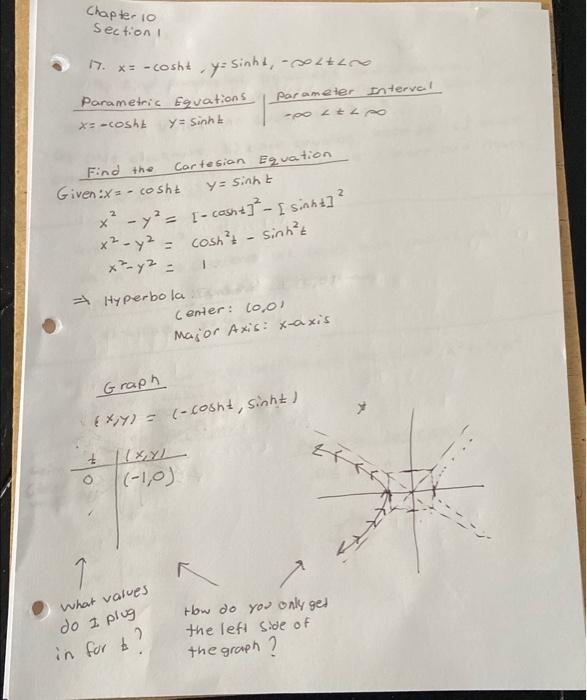 Chapter 10
Section 1
17. x = -cosht, y = sinht, -∞<t<∞
Parametric Equations | Parameter Interval
x = -cosht y = sinht | -∞ < t < ∞
Find the Cartesian Equation
Given: x = - cosht y = sinht
x² - y² = [-cosht]² - [sinht]²
x² - y² = cosh²t - sinh²t
x² - y² = 1
⇒ Hyperbola
Center: (0,0)
Major Axis: x-axis
Graph
(x,y) = (-cosht, sinht)
t | (x,y)
0 | (-1,0)
What values
do I plug
in for t?
How do you only get
the left side of
the graph?